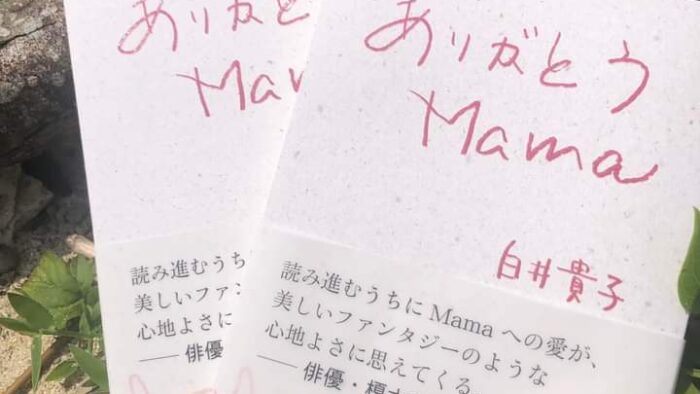 ありがと
Ma
読み進むうち
美しいファン
心地よさに
── 俳優
ありがとう
Mama
白井貴子
読み進むうちに Mama への愛が、
美しいファンタジーのような
心地よさに思えてくる
── 俳優・榎木